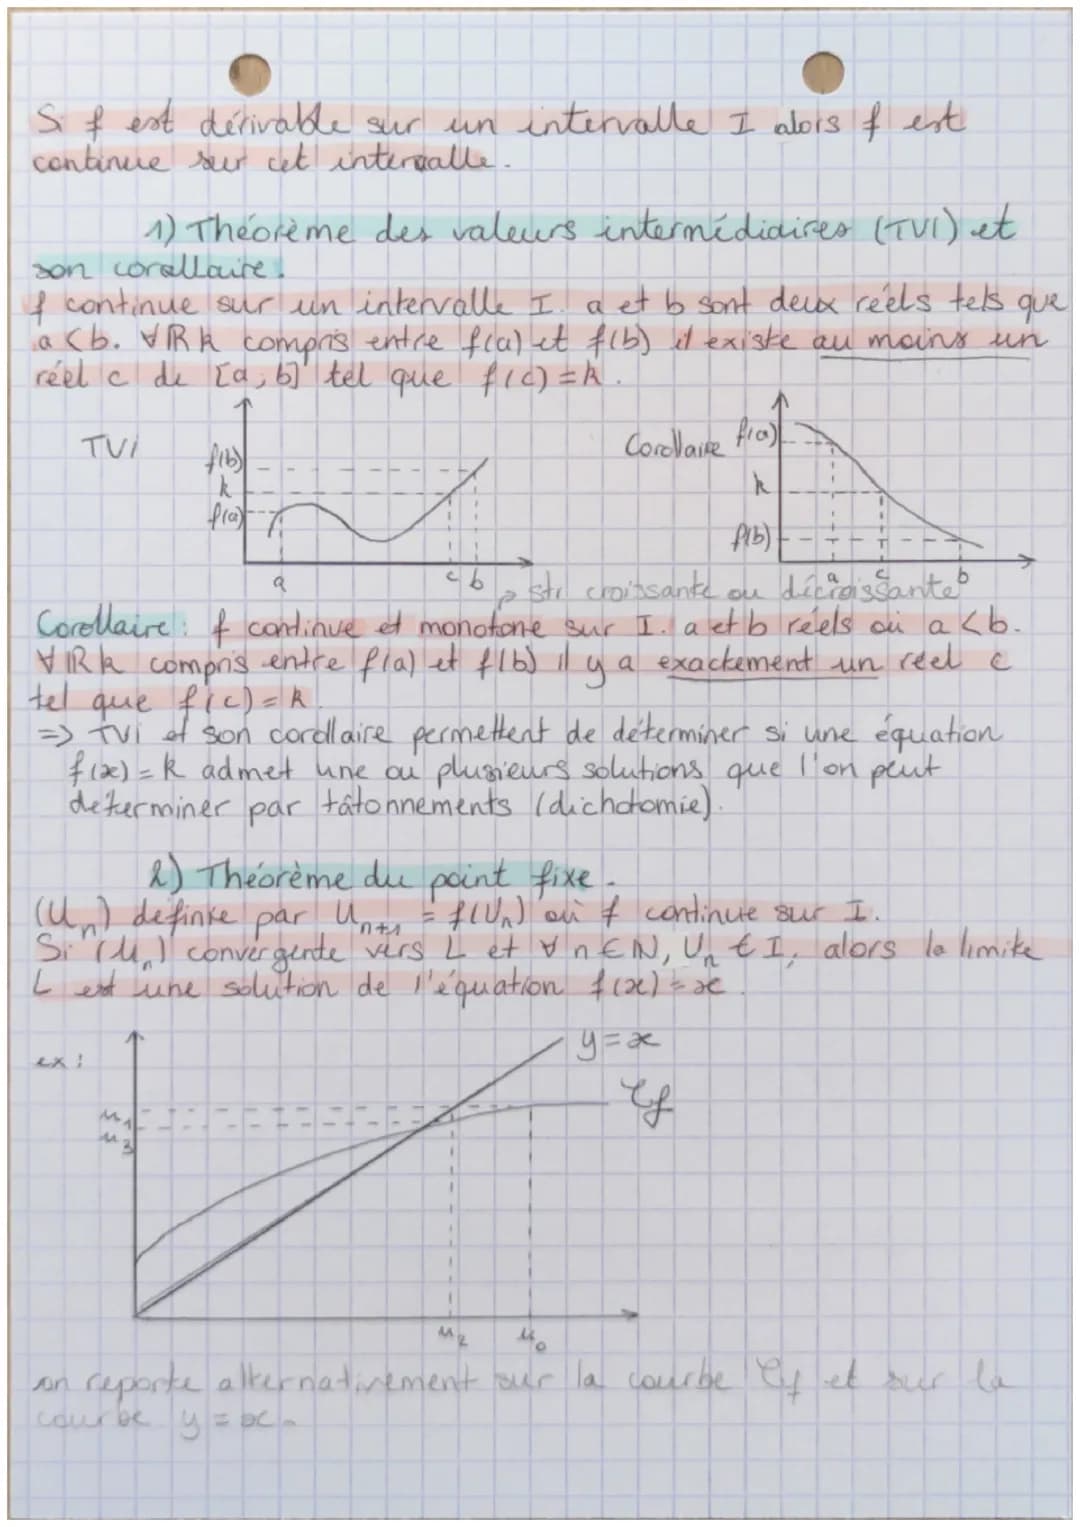 Si f est dérivable sur un intervalle I alors f est
continue sur cet intervalle.
1) Théorème des valeurs intermédiaires (TVI) et
son corollaire.
f continue sur un intervalle I. a et b sont deux réels tels que
a < b. ∀ℝ k compris entre f(a) et f(b) il existe au moins un
réel c de [a ; b] tel que f(c) = k.
TVI
f(b)
k
f(a)
a c b
Corollaire
f(a)
k
f(b)
a c b
→ str croissante ou décroissante
Corollaire : f continue et monotone sur I. a et b réels où a < b.
∀ℝ k compris entre f(a) et f(b) il y a exactement un réel c
tel que f(c) = k.
=> TVI et son corollaire permettent de déterminer si une équation
f(x) = k admet une ou plusieurs solutions que l'on peut
determiner par tâtonnements (dichotomie).
2) Théorème du point fixe.
(Un) définie par Un+1 = f(Un) où f continue sur I.
Si (Un) convergente vers L et ∀ n ∈ ℕ, Un ∈ I, alors la limite
L est une solution de l'équation f(x) = x.
ex :
y = x
Cf
u1
u3
u2 u0
on reporte alternativement sur la courbe Cf et sur la
courbe y = x.